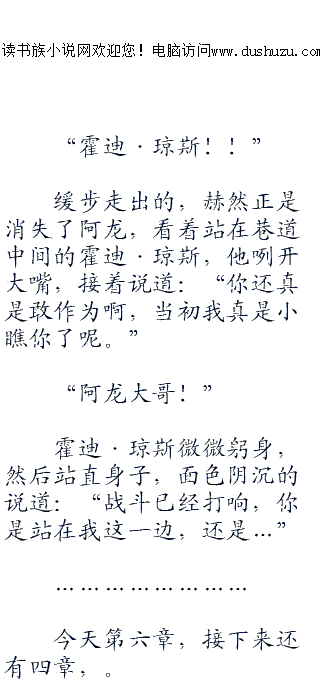 读书族小说网欢迎您！电脑访问www.dushuzu.com
“霍迪·琼斯！！”
缓步走出的，赫然正是
消失了阿龙，看着站在巷道
中间的霍迪·琼斯，他咧开
大嘴，接着说道：“你还真
是敢作为啊，当初我真是小
瞧你了呢。”
“阿龙大哥！”
霍迪·琼斯微微躬身，
然后站直身子，面色阴沉的
说道：“战斗已经打响，你
是站在我这一边，还是…”
……………………
今天第六章，接下来还
有四章，。